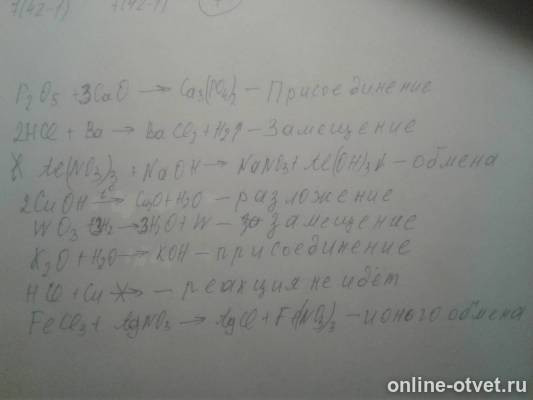 P2O5 + 3CaO → Ca3(PO4)2 – Присоединение
2HCl + Ba → BaCl2 + H2↑ – Замещение
Al(NO3)3 + NaOH → NaNO3 + Al(OH)3↓ – обмена
2CuOH t°→ Cu2O + H2O – разложение
WO3 + 3H2 → 3H2O + W – замещение
K2O + H2O → KOH – присоединение
HCl + Cu → – реакция не идёт
FeCl3 + AgNO3 → AgCl + Fe(NO3)3 – ионого обмена
online-otvet.ru